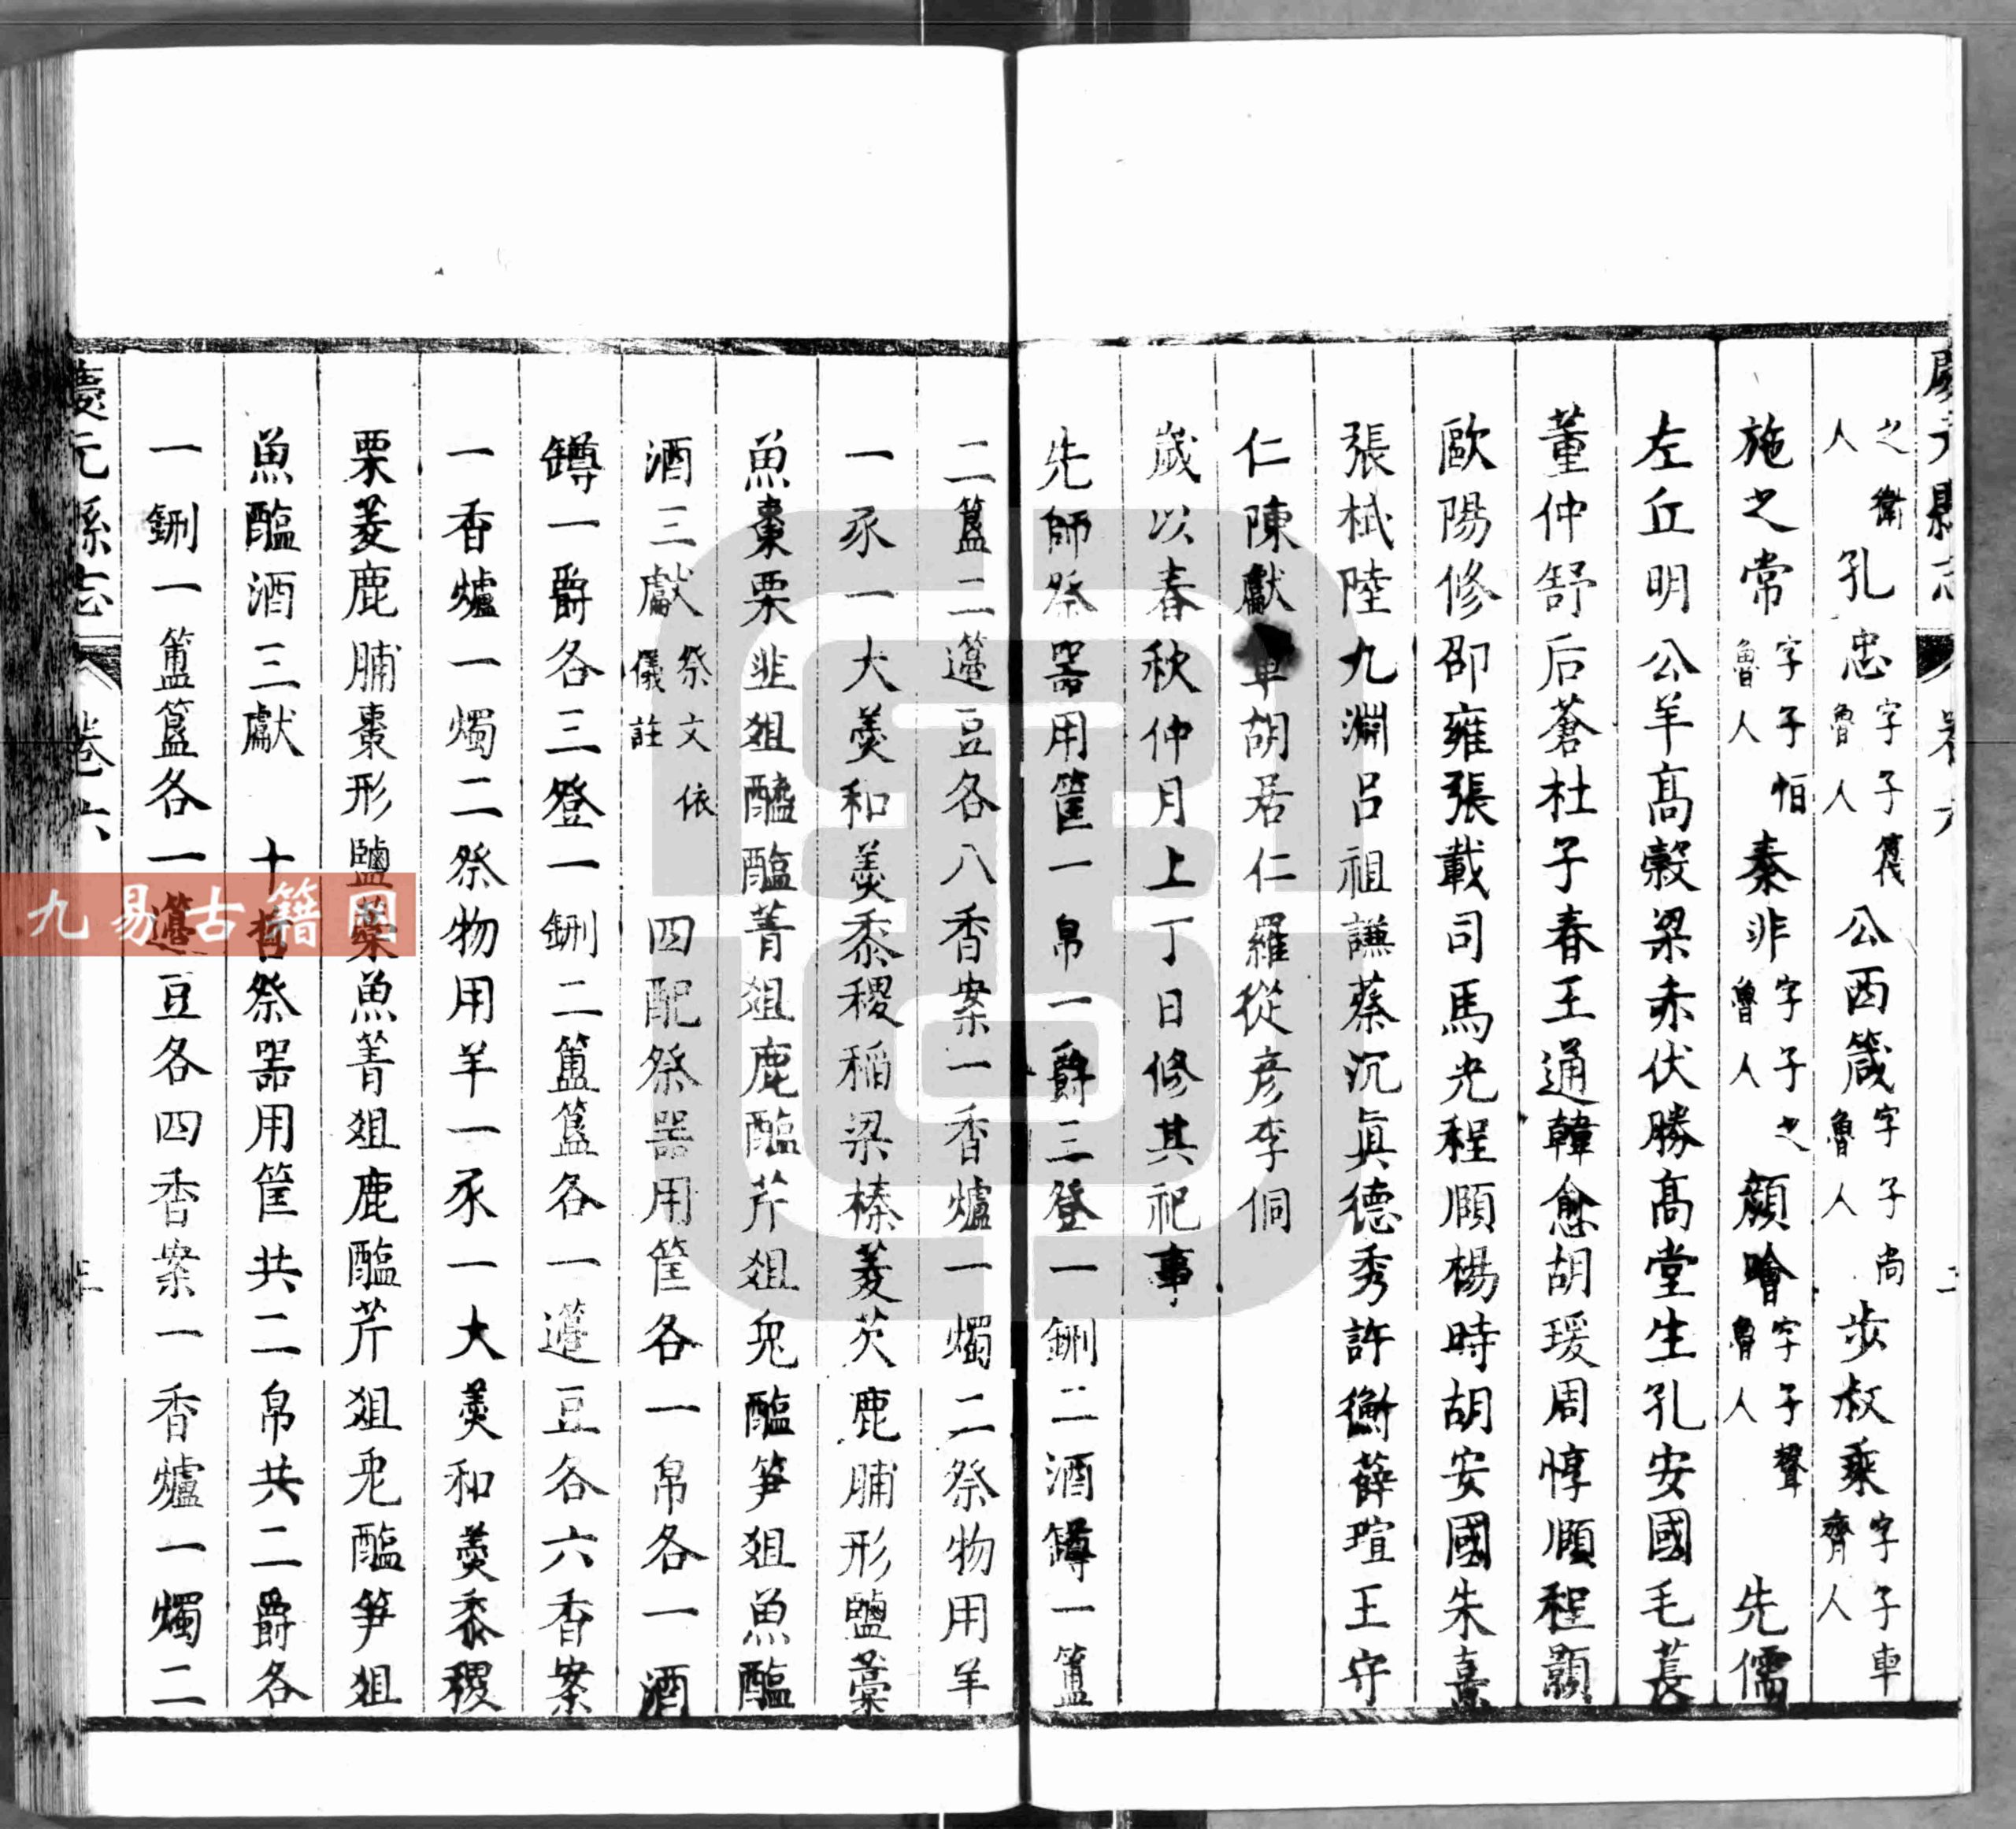 之衛人孔忠字子蔑魯人公西箴字子尚魯人步叔乘字子車齊人
施之常字子怕魯人秦非字子之魯人顏噲字子聲魯人先儒
左丘明公羊髙榖梁赤伏勝髙堂生孔安國毛萇
董仲舒后蒼杜子春王通韓愈胡瑗周惇頤程顥
歐陽修邵雍張載司馬光程頤楊時胡安國朱熹
張栻陸九淵吕祖謙蔡沉眞德秀許衡薛瑄王守
仁陳獻章胡居仁羅從彦李侗
歲以春秋仲月上丁日修其祀事
先師祭噐用筐一帛一爵三登一鉶二酒罇一簠
二簋二籩豆各八香案一香爐一燭二祭物用羊
一豕一大羮和羮黍稷稲梁榛菱芡鹿脯形鹽藁
魚棗栗韭爼醓醢菁爼鹿醢芹爼兎醢笋爼魚醢
酒三獻祭文依儀註四配祭噐用筐各一帛各一酒
罇一爵各三登一鉶二簠簋各一籩豆各六香案
一香爐一燭二祭物用羊一豕一大羮和羮黍稷
栗菱鹿脯棗形鹽藁魚菁爼鹿醢芹爼兎醢笋爼
魚醢酒三獻十哲祭噐用筐共二帛共二爵各
一鉶一簠簋各一籩豆各四香案一香爐一燭二
慶元縣志 卷六
九易古籍